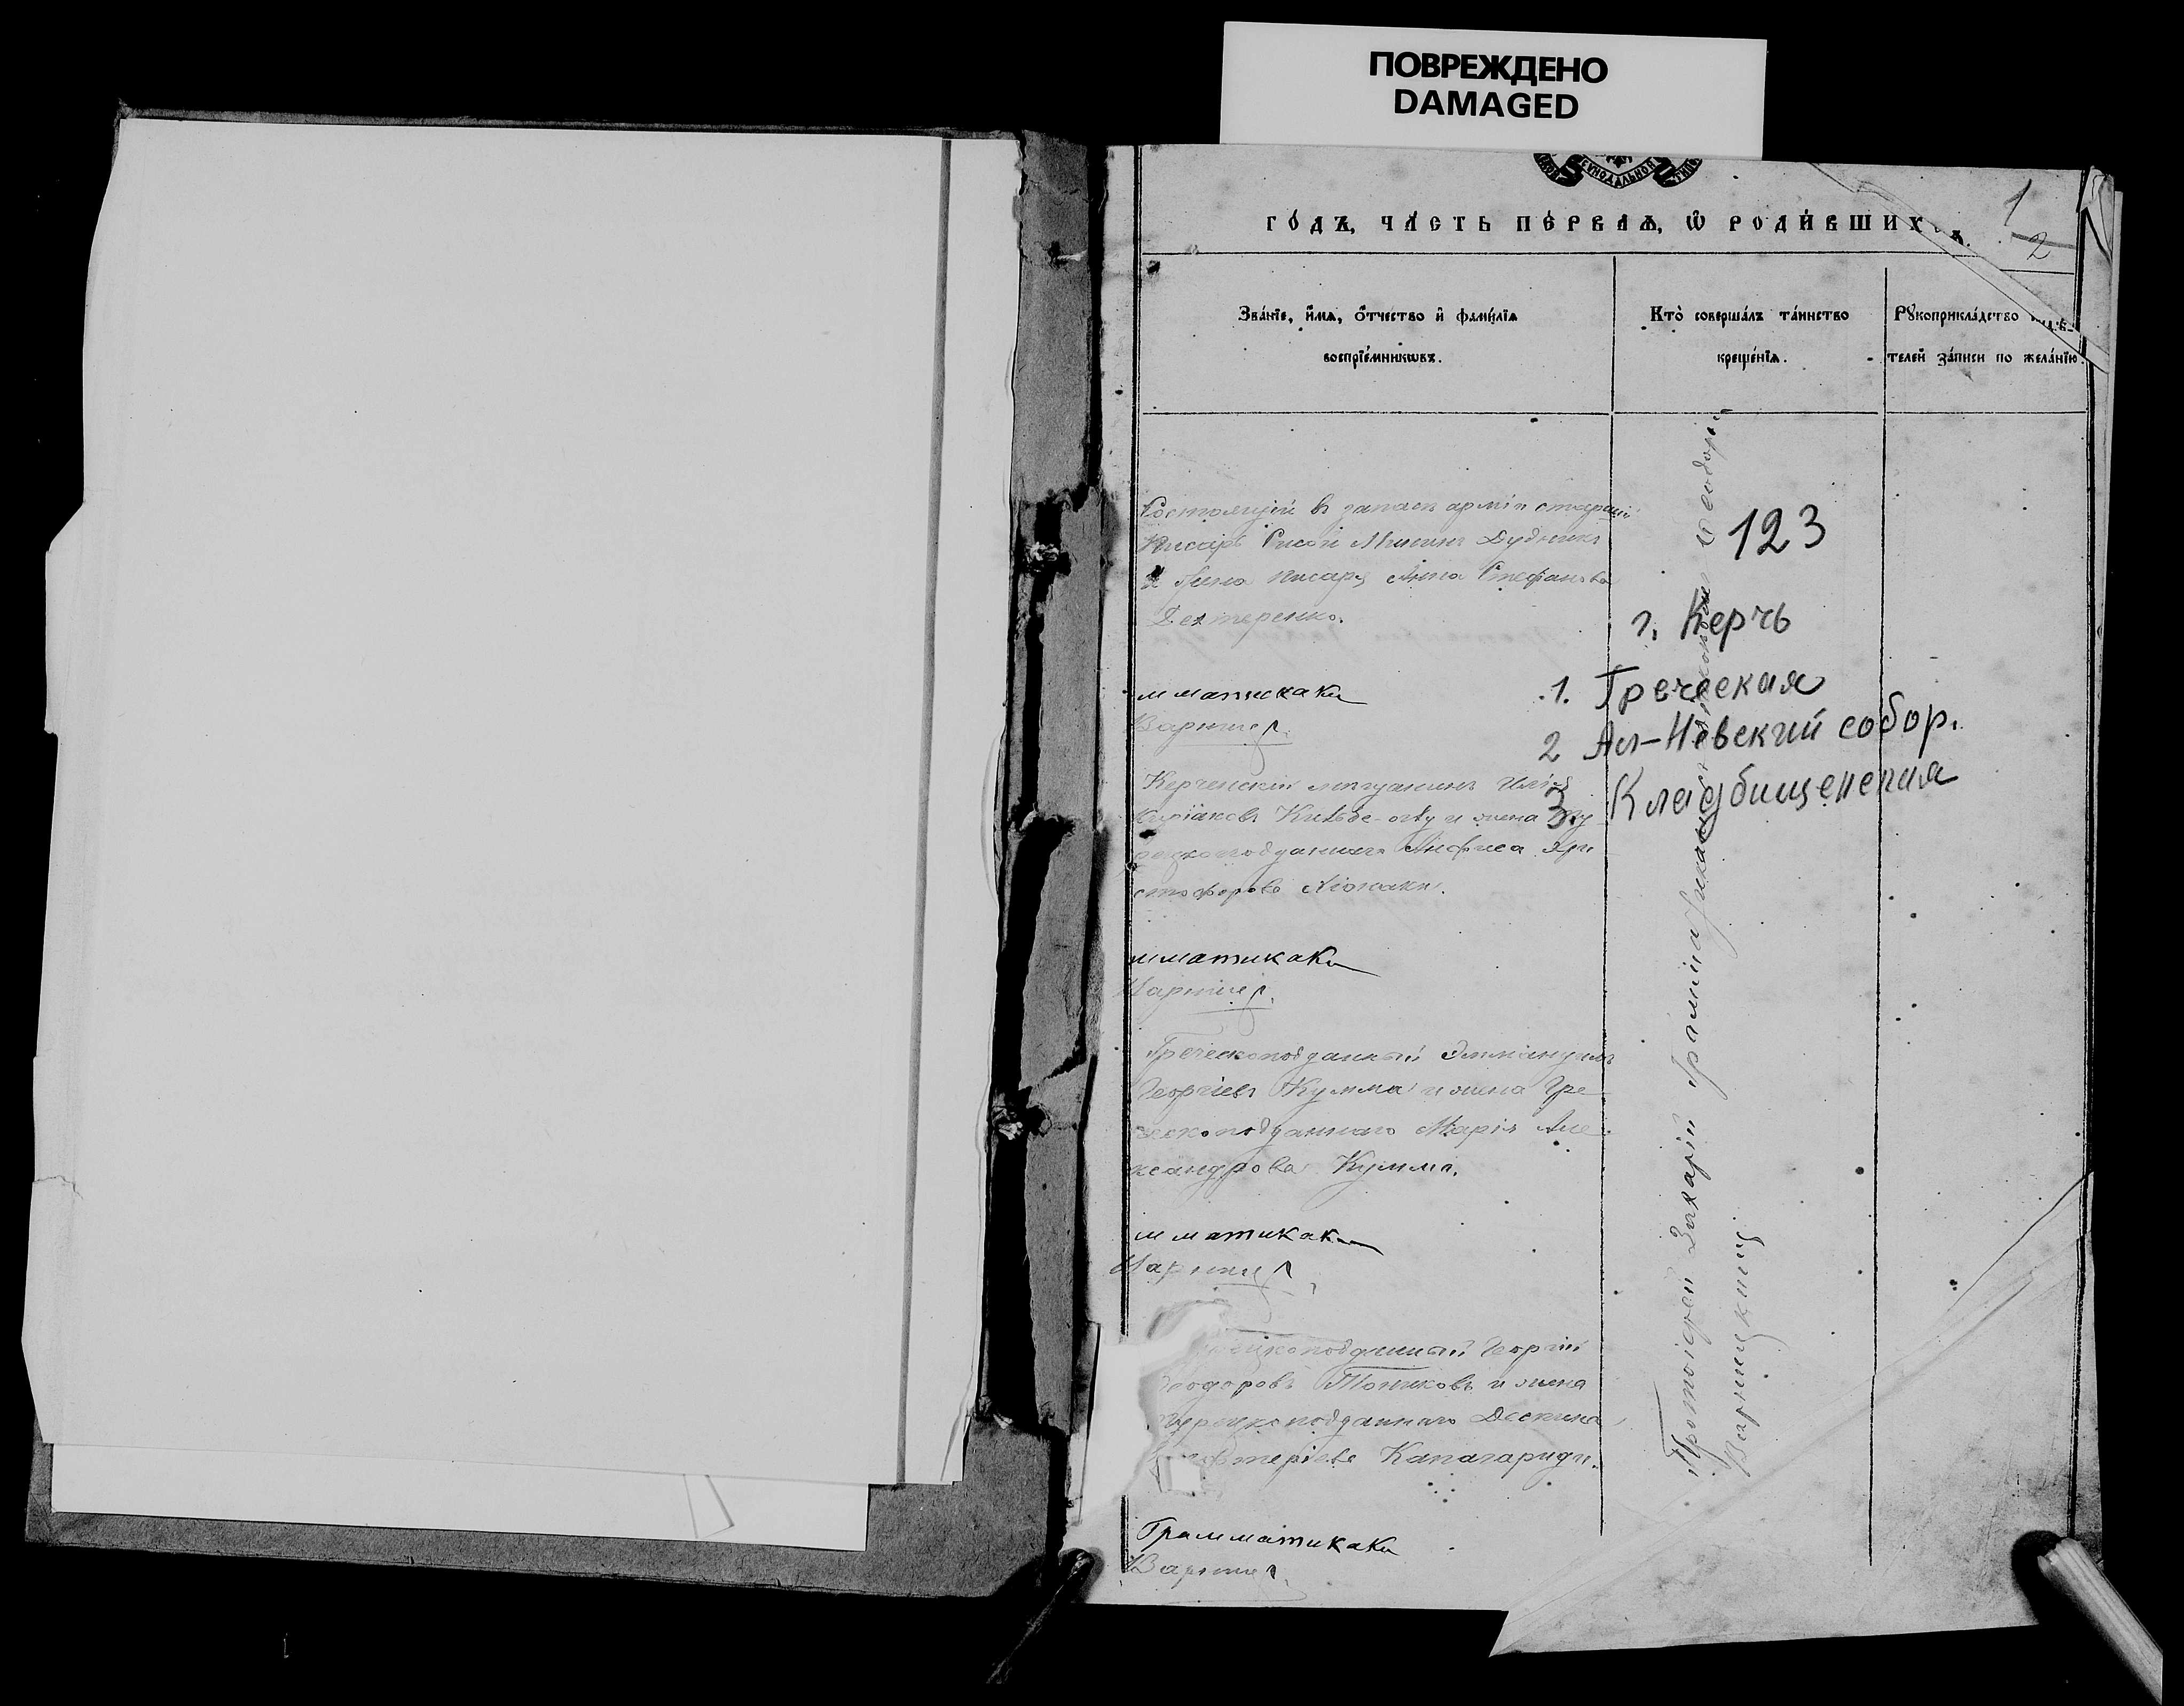 ПОВРЕЖДЕНО
DAMAGED
СѴНОДАЛЬНОЙ
1
2
ГО́ДЪ, ЧА́СТЬ ПЕ́РВАѦ, Ѡ҆ РОДИ́ВШИХ
Зва́нїе, и҆́мѧ, ѻ҆́тчество и҆ фами́лїѧ
воспрїе́мникѡвъ.
Кто̀ соверша́лъ та́инство
креще́нїѧ.
Рꙋкоприкла́дство
телей за́писи по жела́нїю.
Состоящій въ запасѣ арміи старшій
Писарь Минин Дудник
и жена писаря Анна Стефанова
Дехтеренко.
мматикаки
Варниц.
Керченскій мѣщанинъ Илія
Киріаковъ и жена Ту
рецкоподданнаго Анфиса Хри
стофорова
мматикаки
Варниц.
Греческоподданный Эммануилъ
Георгіевъ Кумма и жена Гре
ческоподданнаго Марія Але
ксандрова Кумма.
мматикаки
Варниц.
рецкоподданный Георгій
Феодоровъ Топиковъ и жена
Турецкоподданнаго Деспина
фтеріева Капагариди.
Грамматикаки
Варниц.
Протоіерей Захарій Грамматикаки с Феодорій
Варницкий
123
г. Керчь
1. Греческая
2 Ал-Невский собор.
3. Кладбищенская